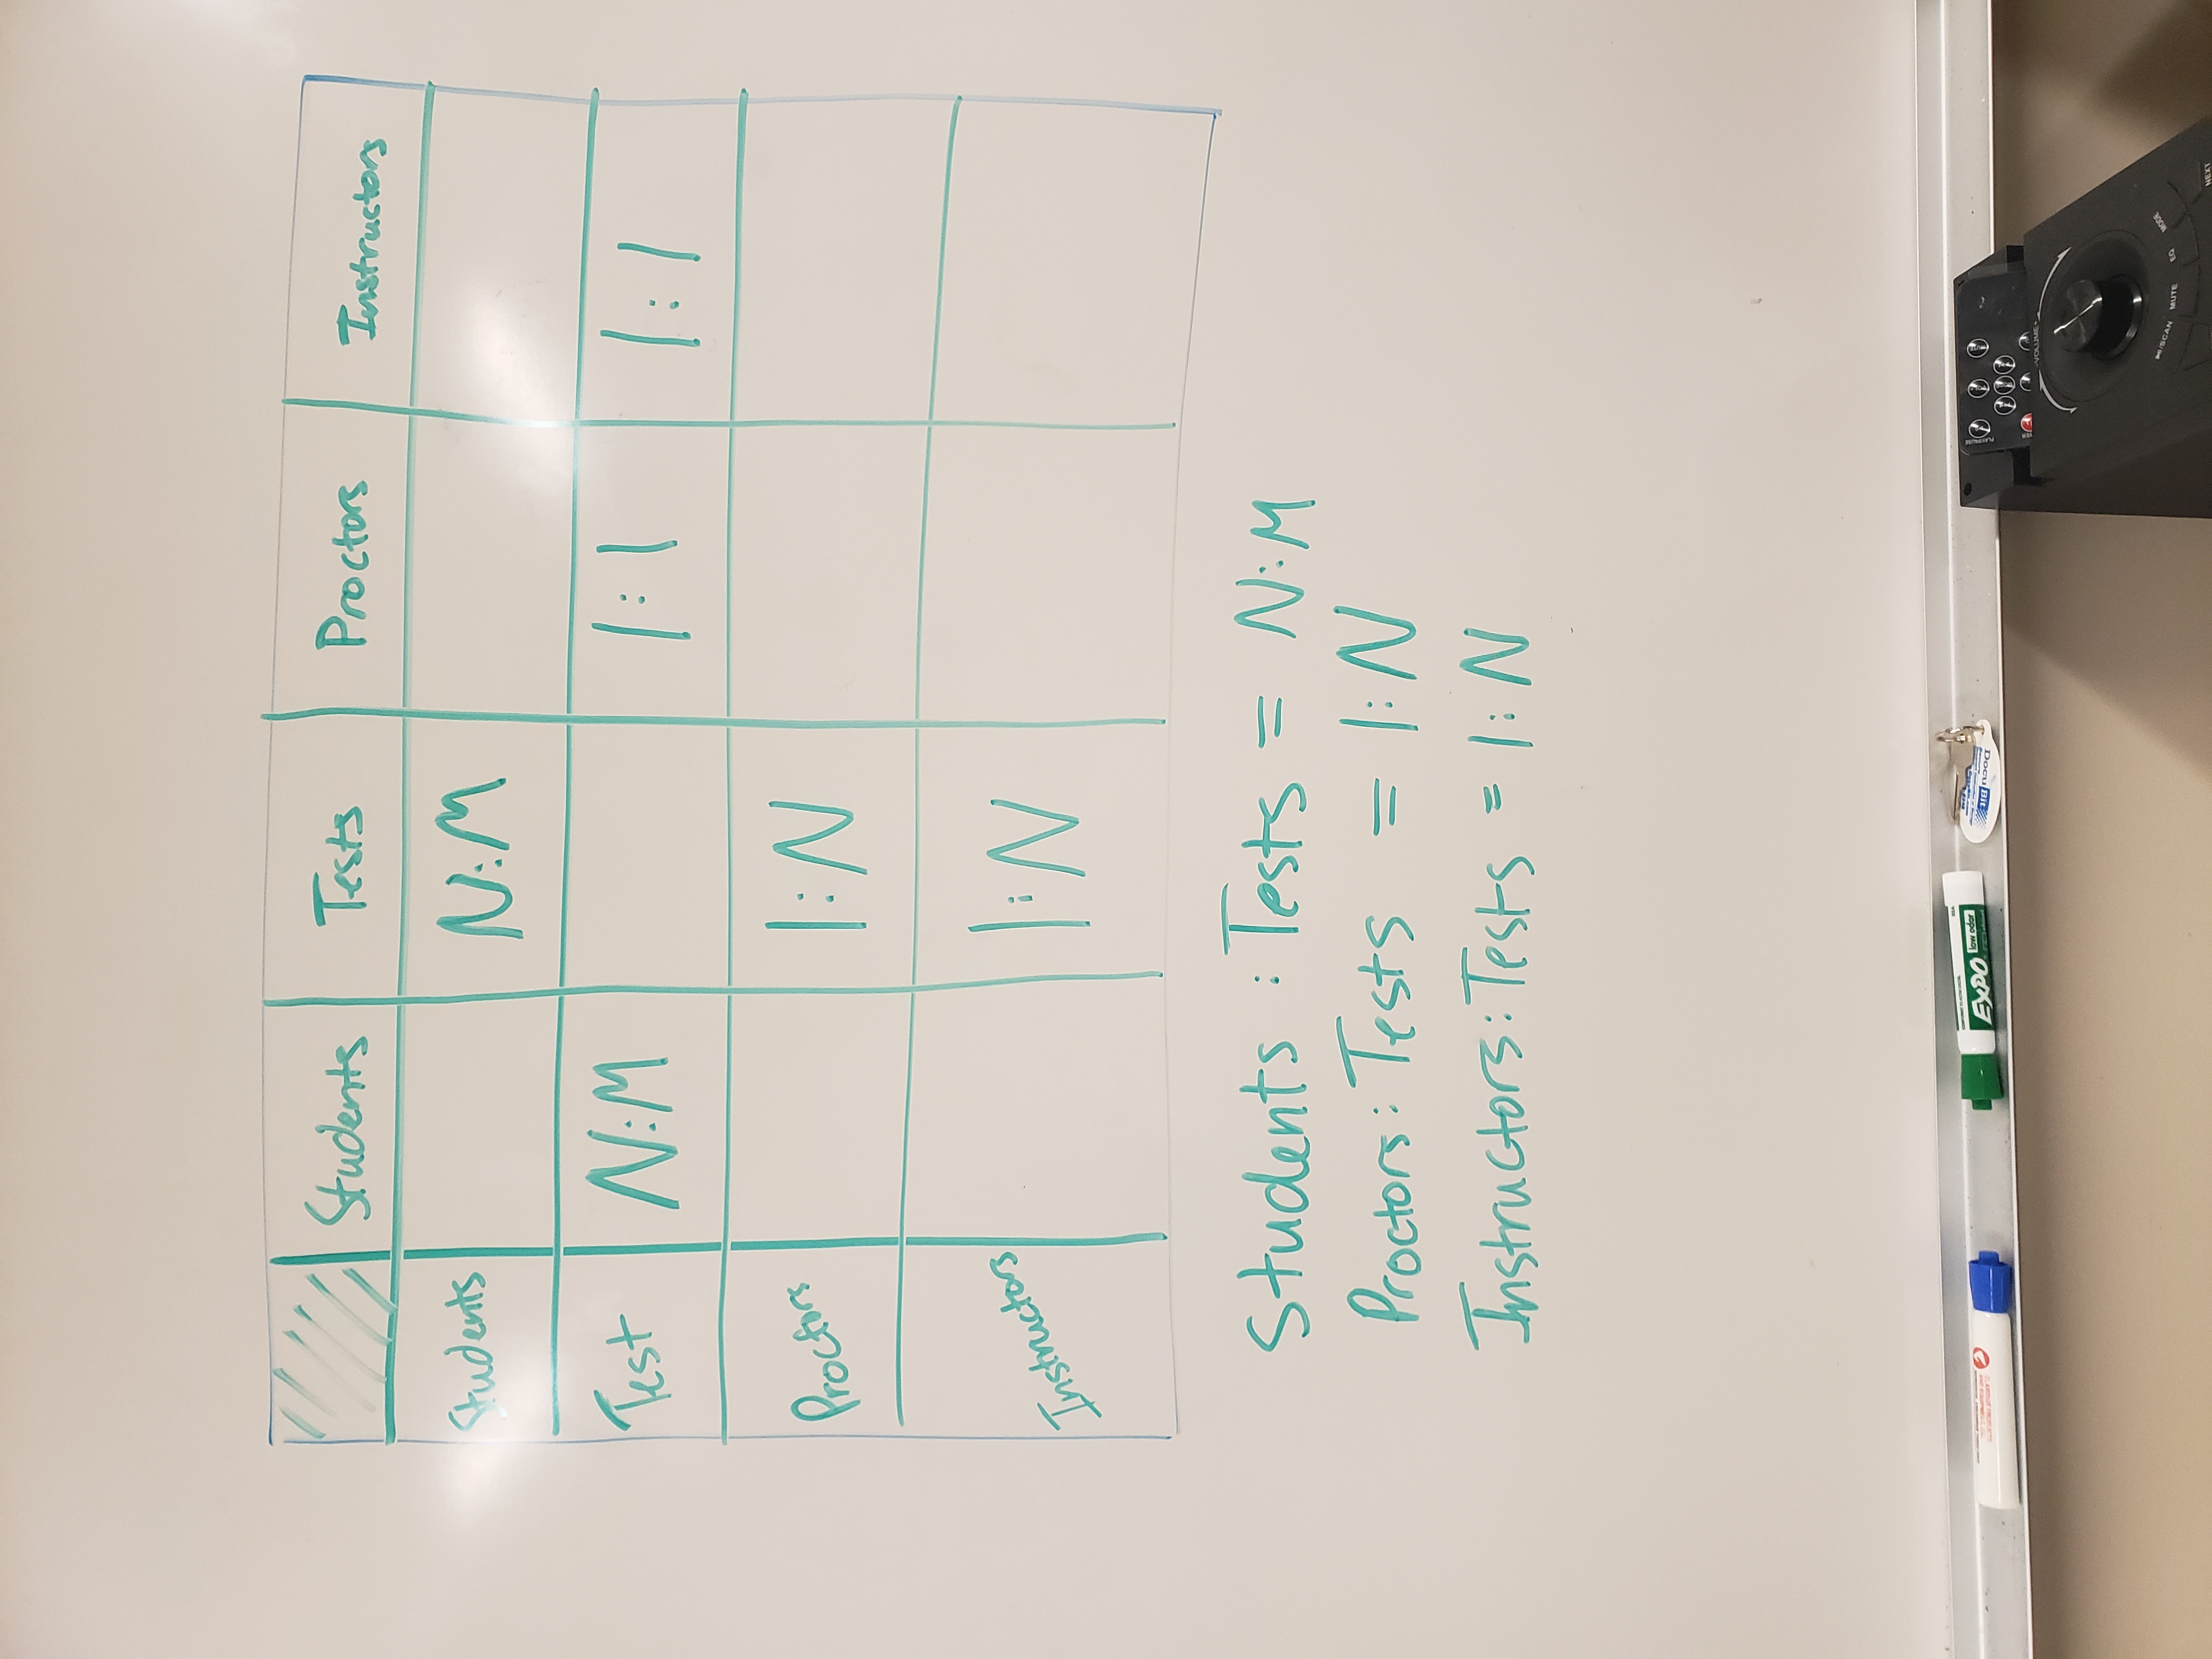 Students Tests Proctors Instructors
Students N:M
Test N:M 1:1 1:1
Proctors 1:N
Instructors 1:N
Students : Tests = N:M
Proctors: Tests = 1:N
Instructors: Tests = 1:N
EXPO low odor
Docu Bit
VOLUME
/SCAN MUTE EQ MODE
NEXT